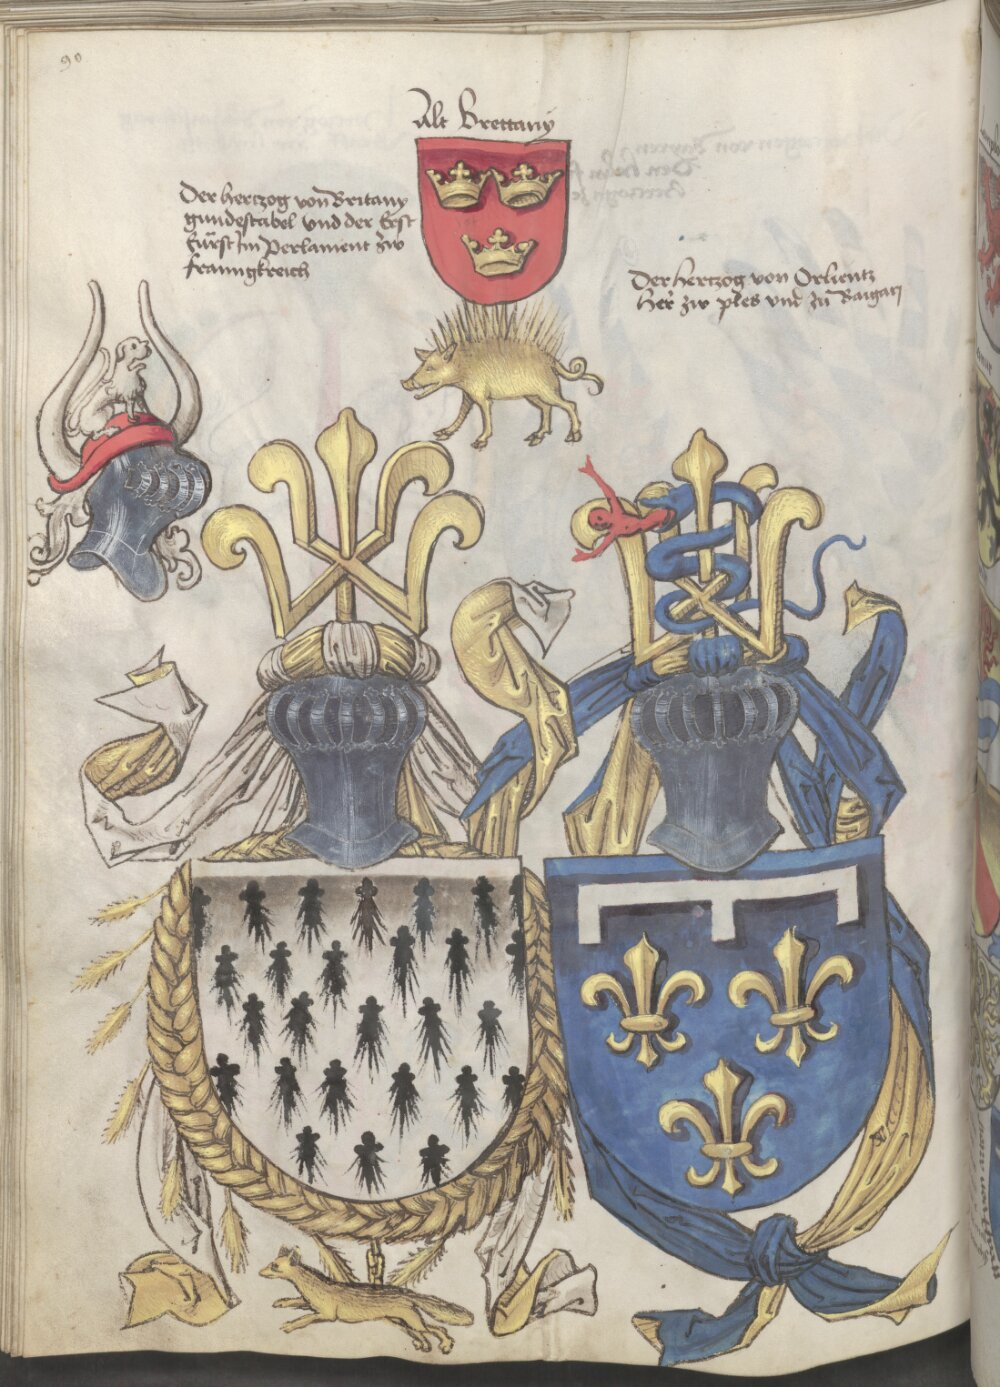 90
Alt Brettany
Der hertzog von Britany
gundestabel vnd der Erst
fürst Im Perlament zw
franngkreich
Der hertzog von Orlientz
her zw ples vnd zu